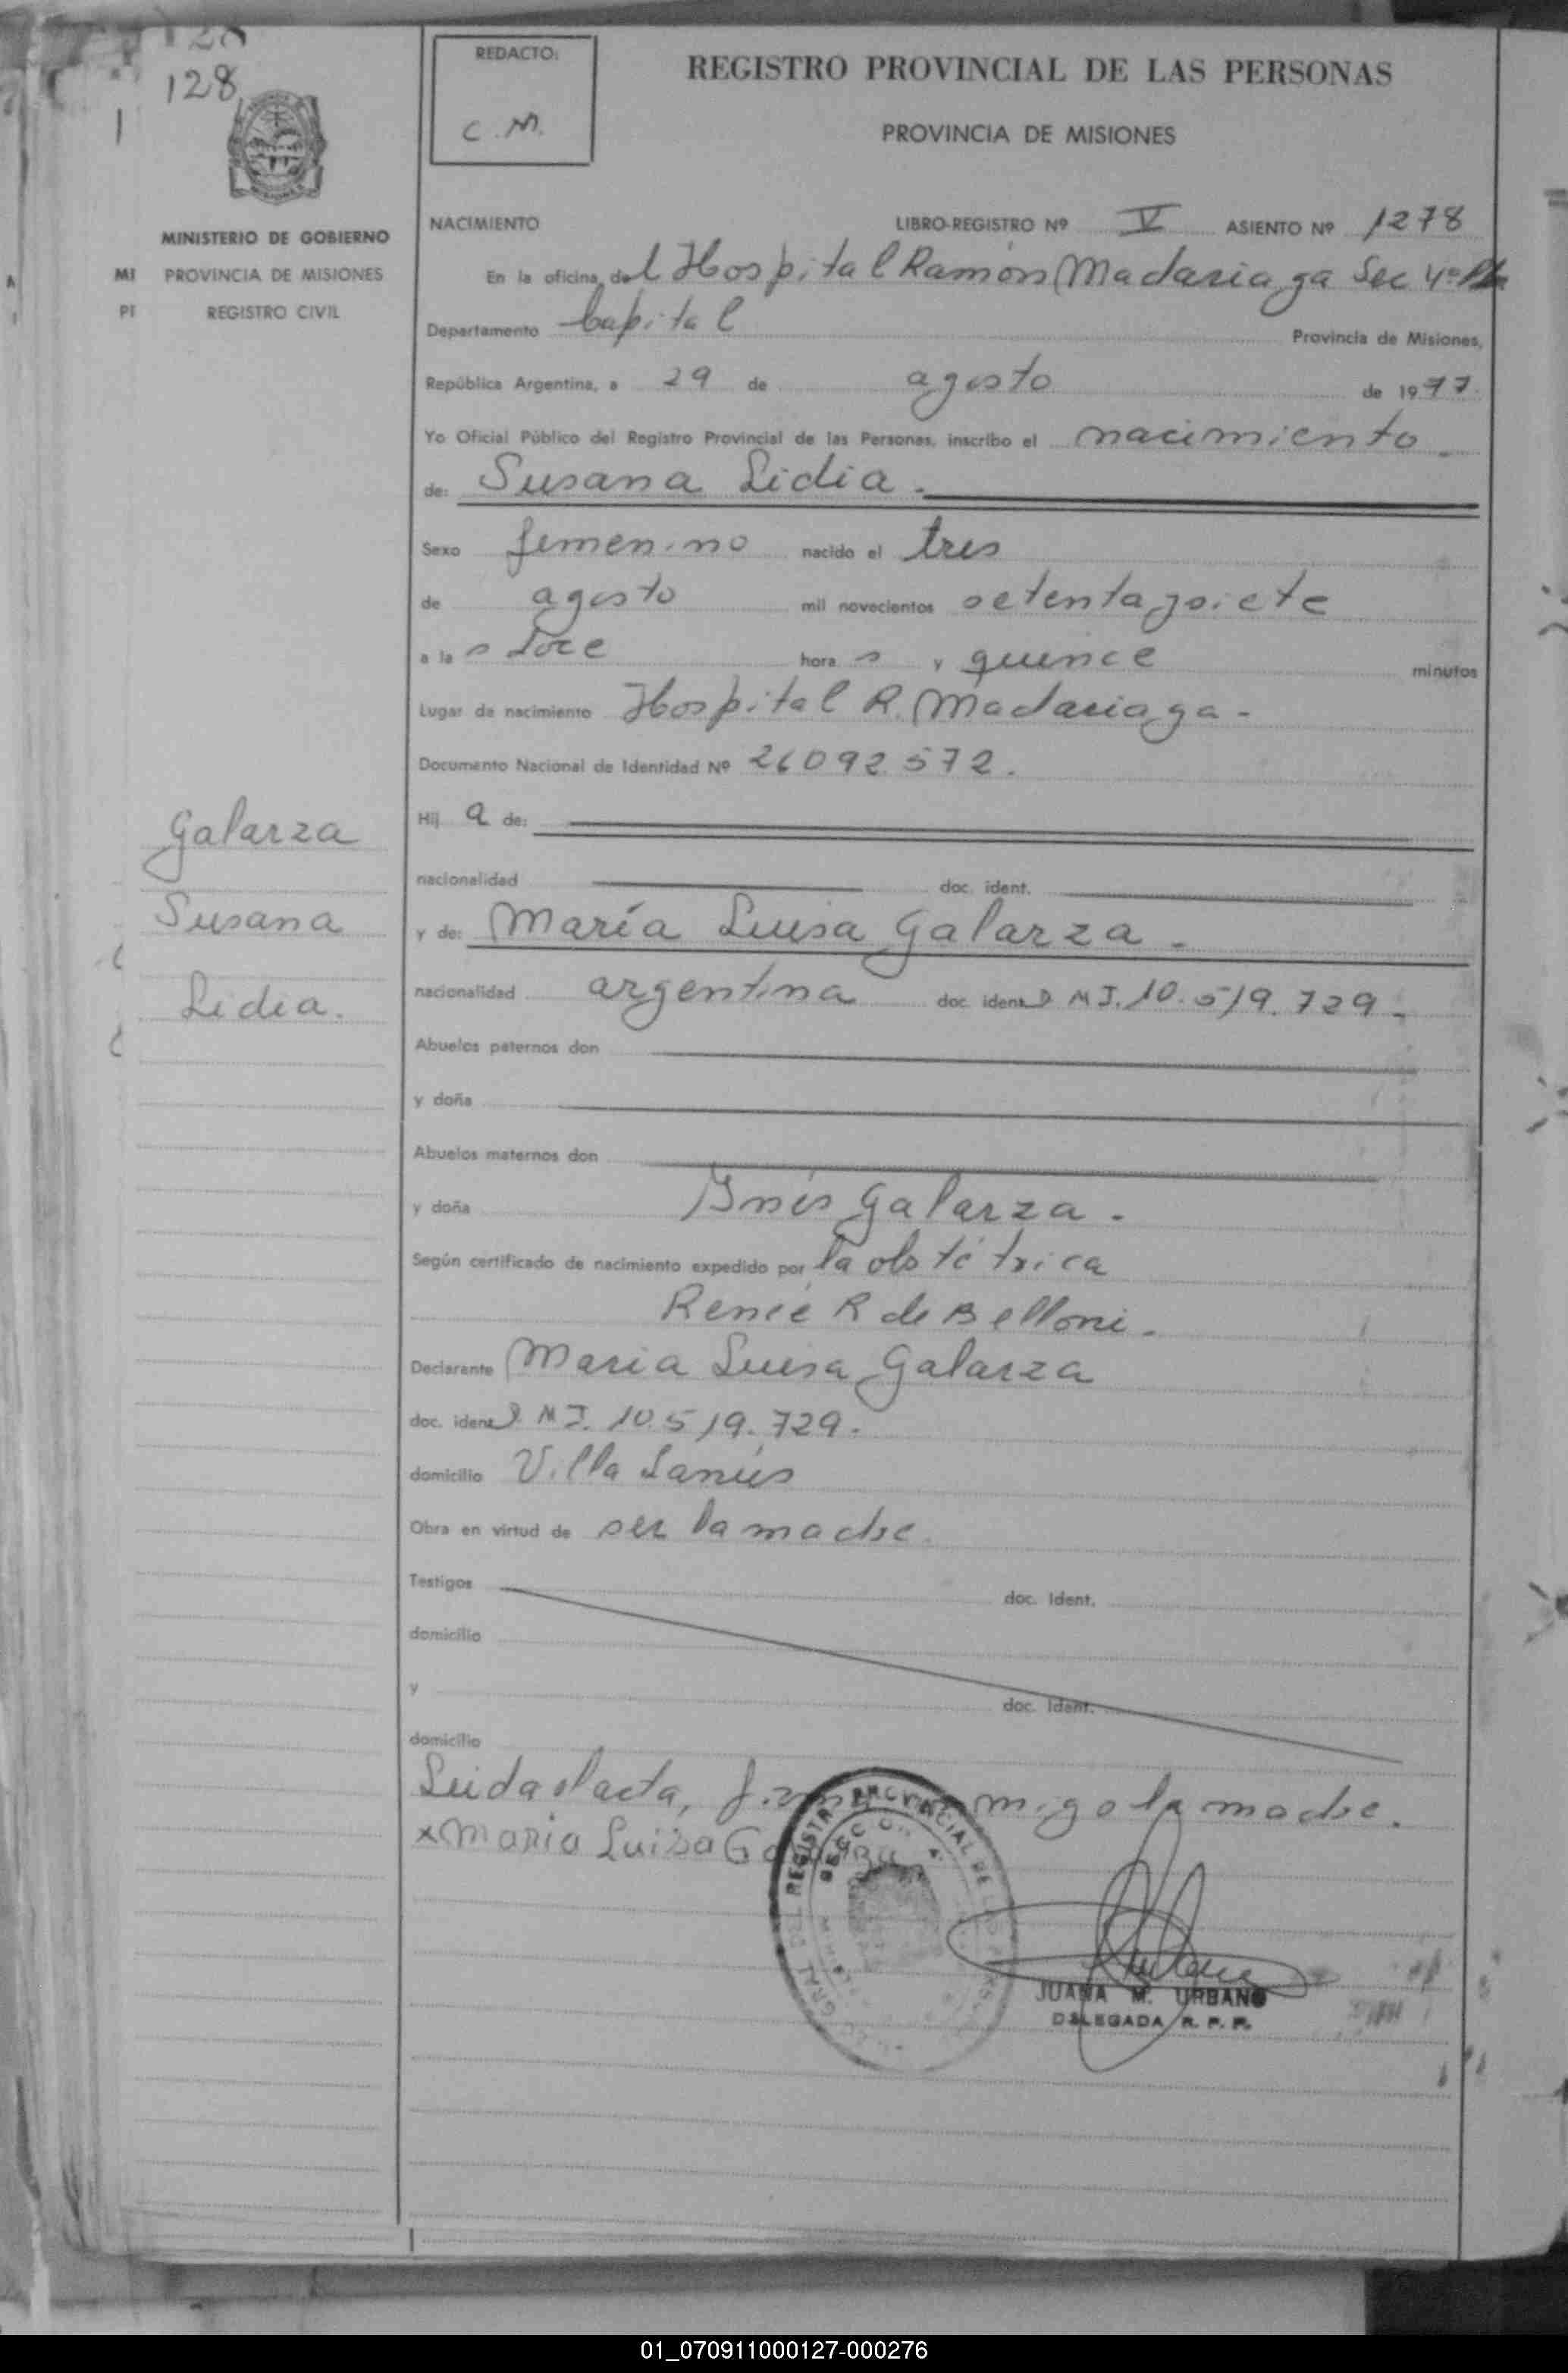 128
128
REDACTO:
C. M.
REGISTRO PROVINCIAL DE LAS PERSONAS
PROVINCIA DE MISIONES
MINISTERIO DE GOBIERNO
MI PROVINCIA DE MISIONES
PI REGISTRO CIVIL
NACIMIENTO LIBRO-REGISTRO Nº V ASIENTO Nº 1278
En la oficina del Hospital Ramón Madariaga Sec 4ª
Departamento Capital Provincia de Misiones,
República Argentina, a 29 de agosto de 1977.
Yo Oficial Público del Registro Provincial de las Personas, inscribo el nacimiento
de: Susana Lidia.
Sexo femenino nacido el tres
de agosto mil novecientos setenta y siete
a las doce horas y quince minutos
Lugar de nacimiento Hospital R. Madariaga-
Documento Nacional de Identidad Nº 26092572.
Galarza
Susana
Lidia.
Hija de:
nacionalidad doc. ident.
y de: María Luisa Galarza.
nacionalidad argentina doc. ident D M I. 10.519.729.
Abuelos paternos don
y doña
Abuelos maternos don
y doña Ynés Galarza.
Según certificado de nacimiento expedido por la obstétrica
Renée R de Belloni.
Declarante Maria Luisa Galarza
doc. ident D. M I. 10.519.729.
domicilio Villa Lanús
Obra en virtud de ser la madre.
Testigos doc. Ident.
domicilio
y doc. Ident.
domicilio
Leida el acta, firma conmigo la madre.
x Maria Luisa Galarza
REGISTRO PROVINCIAL DE LAS PERSONAS
SECCION 4
JUANA M. URBANO
DELEGADA R. P. P.
01_070911000127-000276